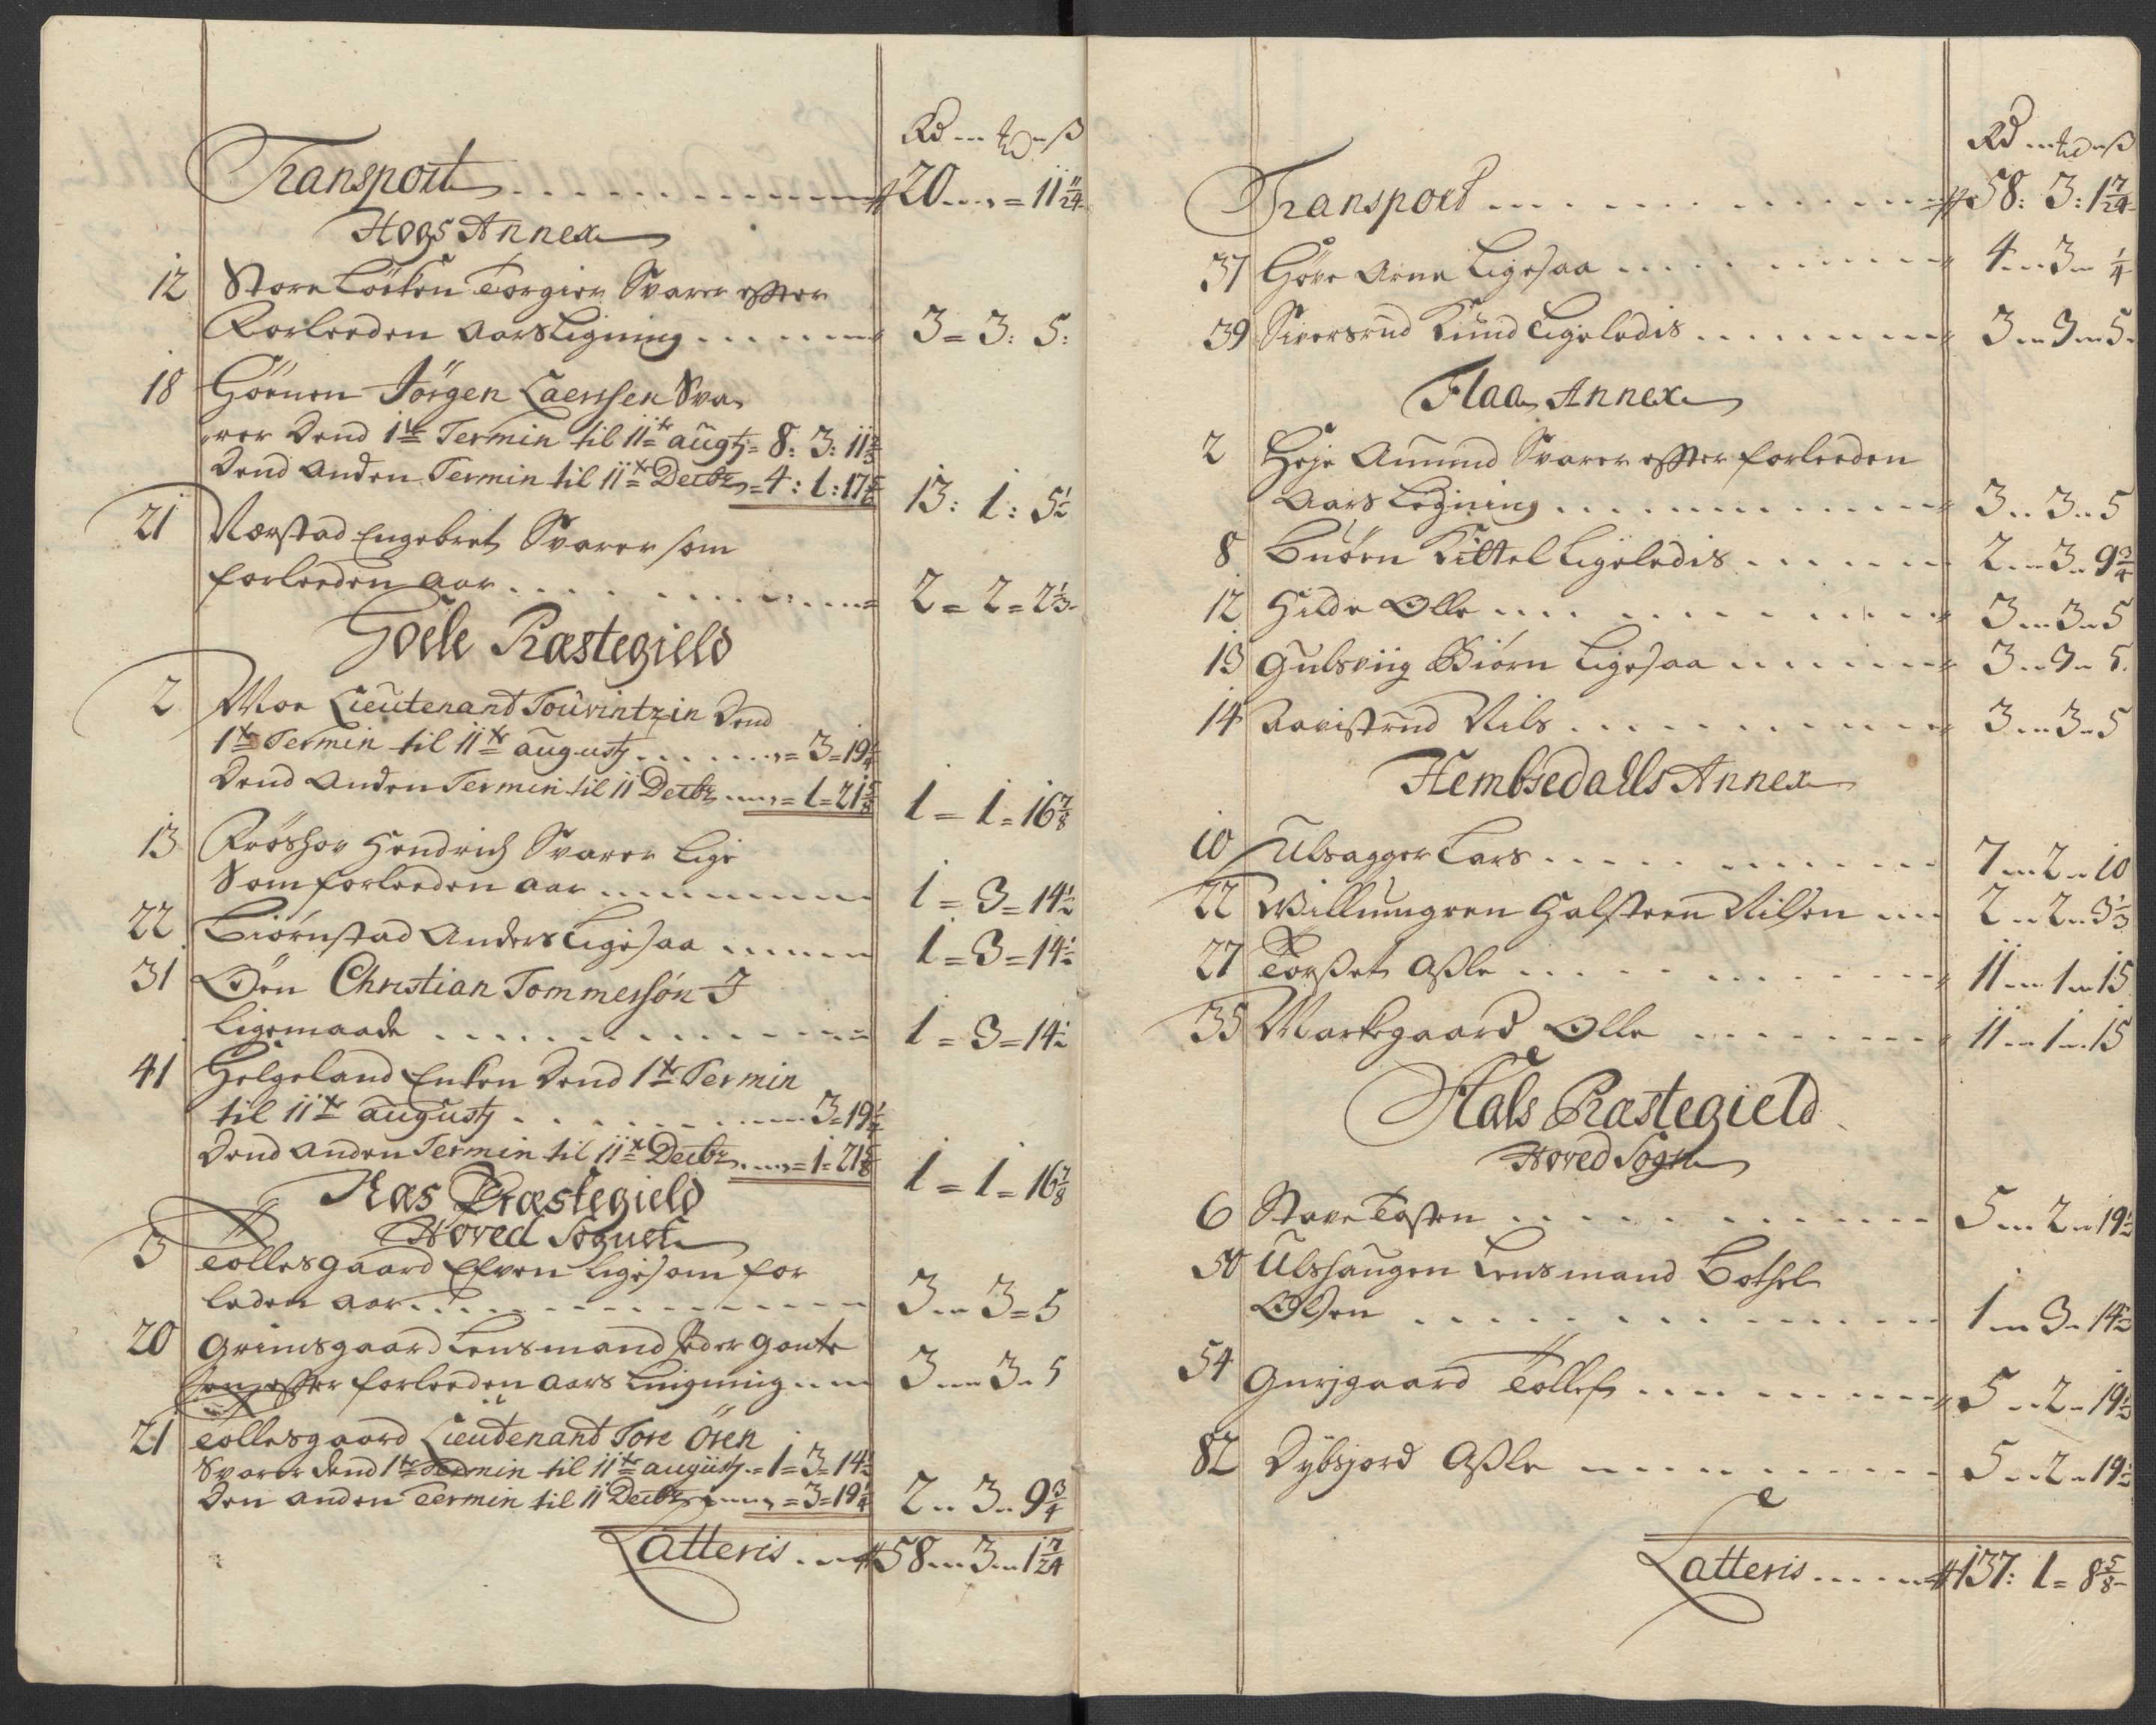 Rd ... ₰ ß
Transport . . . . . . . . . . . . 20 ... = 11 11/24
Hogs Annex
12 Store Löcken Torgier Svarer effter
Forleeden Aars Ligning . . . . . . 3 = 3: 5:
18 Görnen Jörgen Laerssen Sva-
rer Dend 1te Termin til 11te augstj = 8: 3: 11 2/3
Dend Anden Termin til 11te Decbr = 4: 1: 17 5/6
13: 1: 5 1/2
21 Nerstad Engebret Svarer som
forleeden aar . . . . . . . . . 2 = 2 = 2 1/3
Goele Præstegield
2 Moe Lieutenand Tourintzin Dend
1te Termin til 11te augustj . . . . . . = 3 = 19 1/4
Dend Anden Termin til 11 Decbr ..... = 1 = 21 5/8
1 = 1 = 16 7/8
13 Fröshov Hendrich Svarer Lige
Som forleeden aar . . . . . . 1 = 3 = 14 1/2
22 Biörnstad Anders Ligesaa . . . . . 1 = 3 = 14 1/2
31 Öen Christian Tommessön I
Ligemaade . . . . . . . . . . 1 = 3 = 14 1/2
41 Helgeland Enken Dend 1te Termin
til 11te augustj . . . . . . . . . 3 = 19 1/4
Dend anden Termin til 11te Decbr .... = 1 = 21 5/8
1 = 1 = 16 7/8
Næs Præstegield
Hoved Sognet
3 Tollesgaard Efven Ligesom for
leden aar . . . . . . . . . . 3 .. 3 = 5
20 Grimsgaard Lensmand Peder Gaute
sen effter forleeden Aars Ligning .... 3 ... 3 .. 5
21 Tollesgaard Lieutenand Tore Ösen
Svarer dend 1te Termin til 11te augustj = 1 = 3 = 14 1/2
Den anden Termin til 11 Decbr ..... = 3 = 19 1/4
2 .. 3 .. 9 3/4
Latteris . . . 58 ... 3 ... 1 7/24
Rd ... ₰ ß
Transport . . . . . . . . . . . 58: 3: 1 7/24
37 Göve Arne Ligesaa . . . . . . . . . 4 ... 3 .. 1/4
39 Siversrud Knud Ligeledis . . . . . . . 3 ... 3 ... 5
Flaa Annex
2 Heje Amund Svarer effter forleeden
Aars Legning . . . . . . . . . . 3 .. 3 .. 5
8 Buörn Kittel Ligeledis . . . . . . 2 ... 3 .. 9 3/4
12 Hilde Olle . . . . . . . . . . 3 ... 3 .. 5
13 Gulsviig Biörn Ligesaa . . . . . . 3 .. 3 .. 5
14 Aavistrud Nils . . . . . . . . . . 3 ... 3 .. 5
Hembsedalls Annex
10 Ulsagger Lars . . . . . . . . . . 7 ... 2 .. 10
22 Willumgren Halsteen Nilsen .... 2 .. 2 .. 3 1/3
27 Torset Aßle . . . . . . . . . . 11 ... 1 .. 15
35 Markegaard Olle . . . . . . . . 11 ... 1 ... 15
Aals Præstegield
Hoved Sogn
6 Stave Tosten . . . . . . . . . . 5 ... 2 .. 19 1/2
50 Ulshaugen Lensmand Bothel
Olsen . . . . . . . . . . . . 1 ... 3 .. 14 1/2
54 Gurjgaard Tollef . . . . . . . . . 5 .. 2 .. 19 1/2
82 Dybsjord Aßle . . . . . . . . . 5 .. 2 .. 19 1/2
Latteris . . . . . 137: 1 = 8 5/8